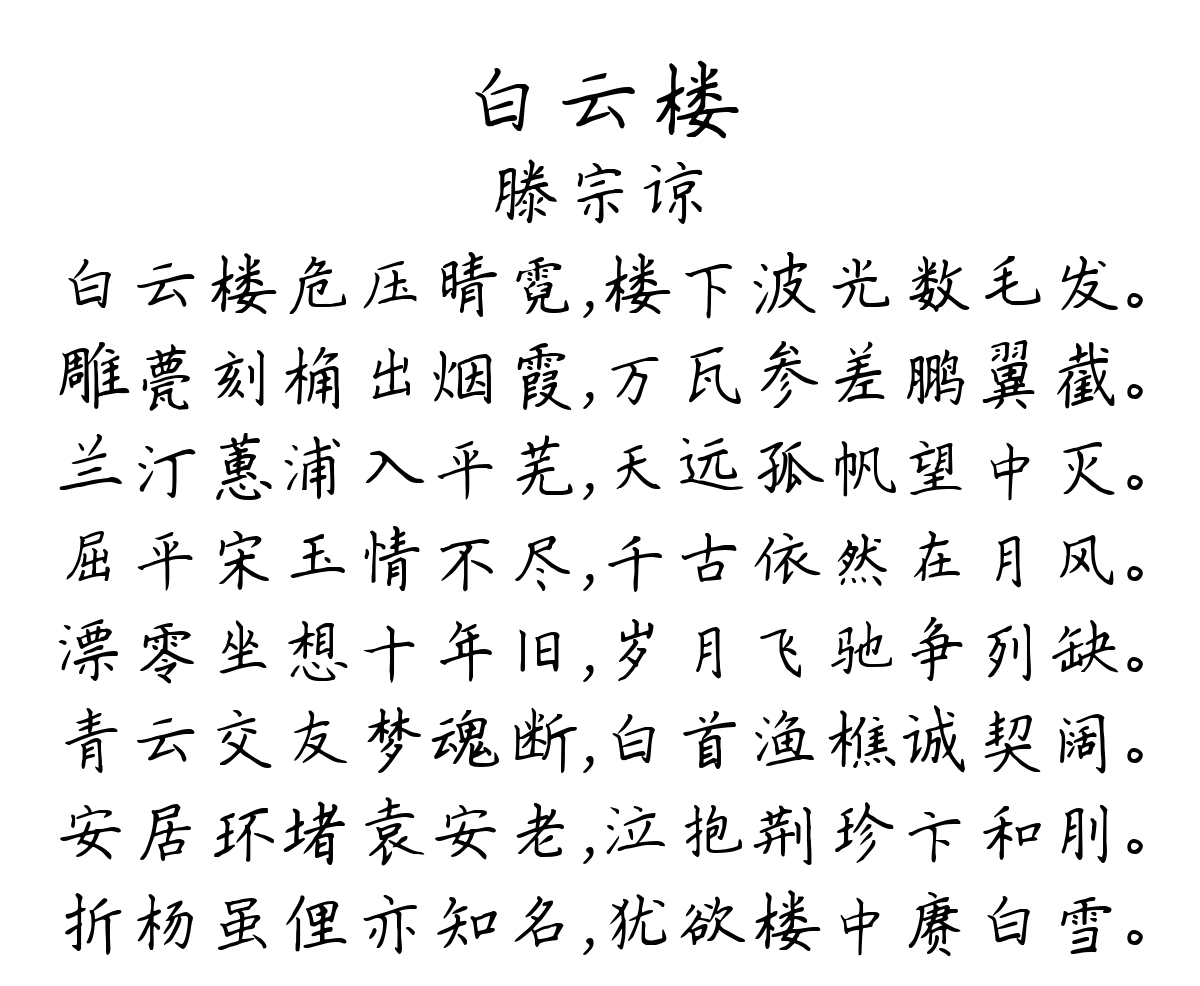 白云楼
滕宗谅
白云楼危压晴霓,楼下波光数毛发。
雕甍刻桷出烟霞,万瓦参差鹏翼截。
兰汀蕙浦入平芜,天远孤帆望中灭。
屈平宋玉情不尽,千古依然在月风。
漂零坐想十年旧,岁月飞驰争列缺。
青云交友梦魂断,白首渔樵诚契阔。
安居环堵袁安老,泣抱荆珍卞和刖。
折杨虽俚亦知名,犹欲楼中赓白雪。